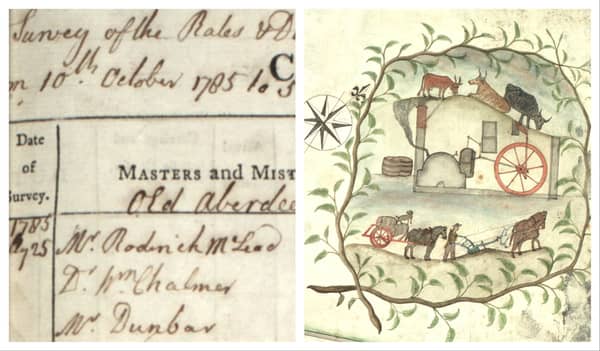 Survey of the Rates & D
m 10th October 1785 to 5
C
Date
of
Survey.
MASTERS and MIST
Old Aberdee
1785
25
Mr. Roderick McLeod
Dr. Wm Chalmer
Mr. Dunbar